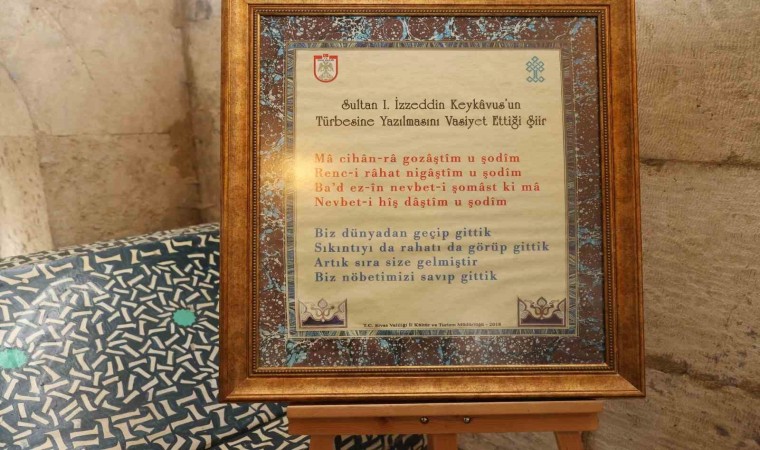 Sultan I. İzzeddin Keykâvus'un
Türbesine Yazılmasını Vasiyet Ettiği Şiir
Mâ cihân-râ gozâştîm u şodîm
Renc-i râhat nigâştîm u şodîm
Ba'd ez-în nevbet-i şomâst ki mâ
Nevbet-i hîş dâştîm u şodîm
Biz dünyadan geçip gittik
Sıkıntıyı da rahatı da görüp gittik
Artık sıra size gelmiştir
Biz nöbetimizi savıp gittik
T.C. Sivas Valiliği İl Kültür ve Turizm Müdürlüğü - 2019